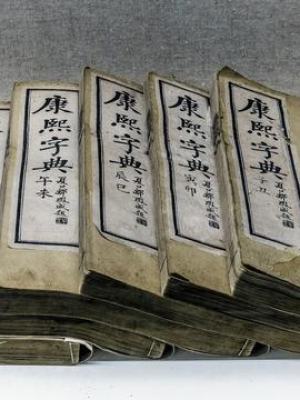 康熙字典
子丑
康熙字典
寅卯
康熙字典
辰巳
康熙字典
午未